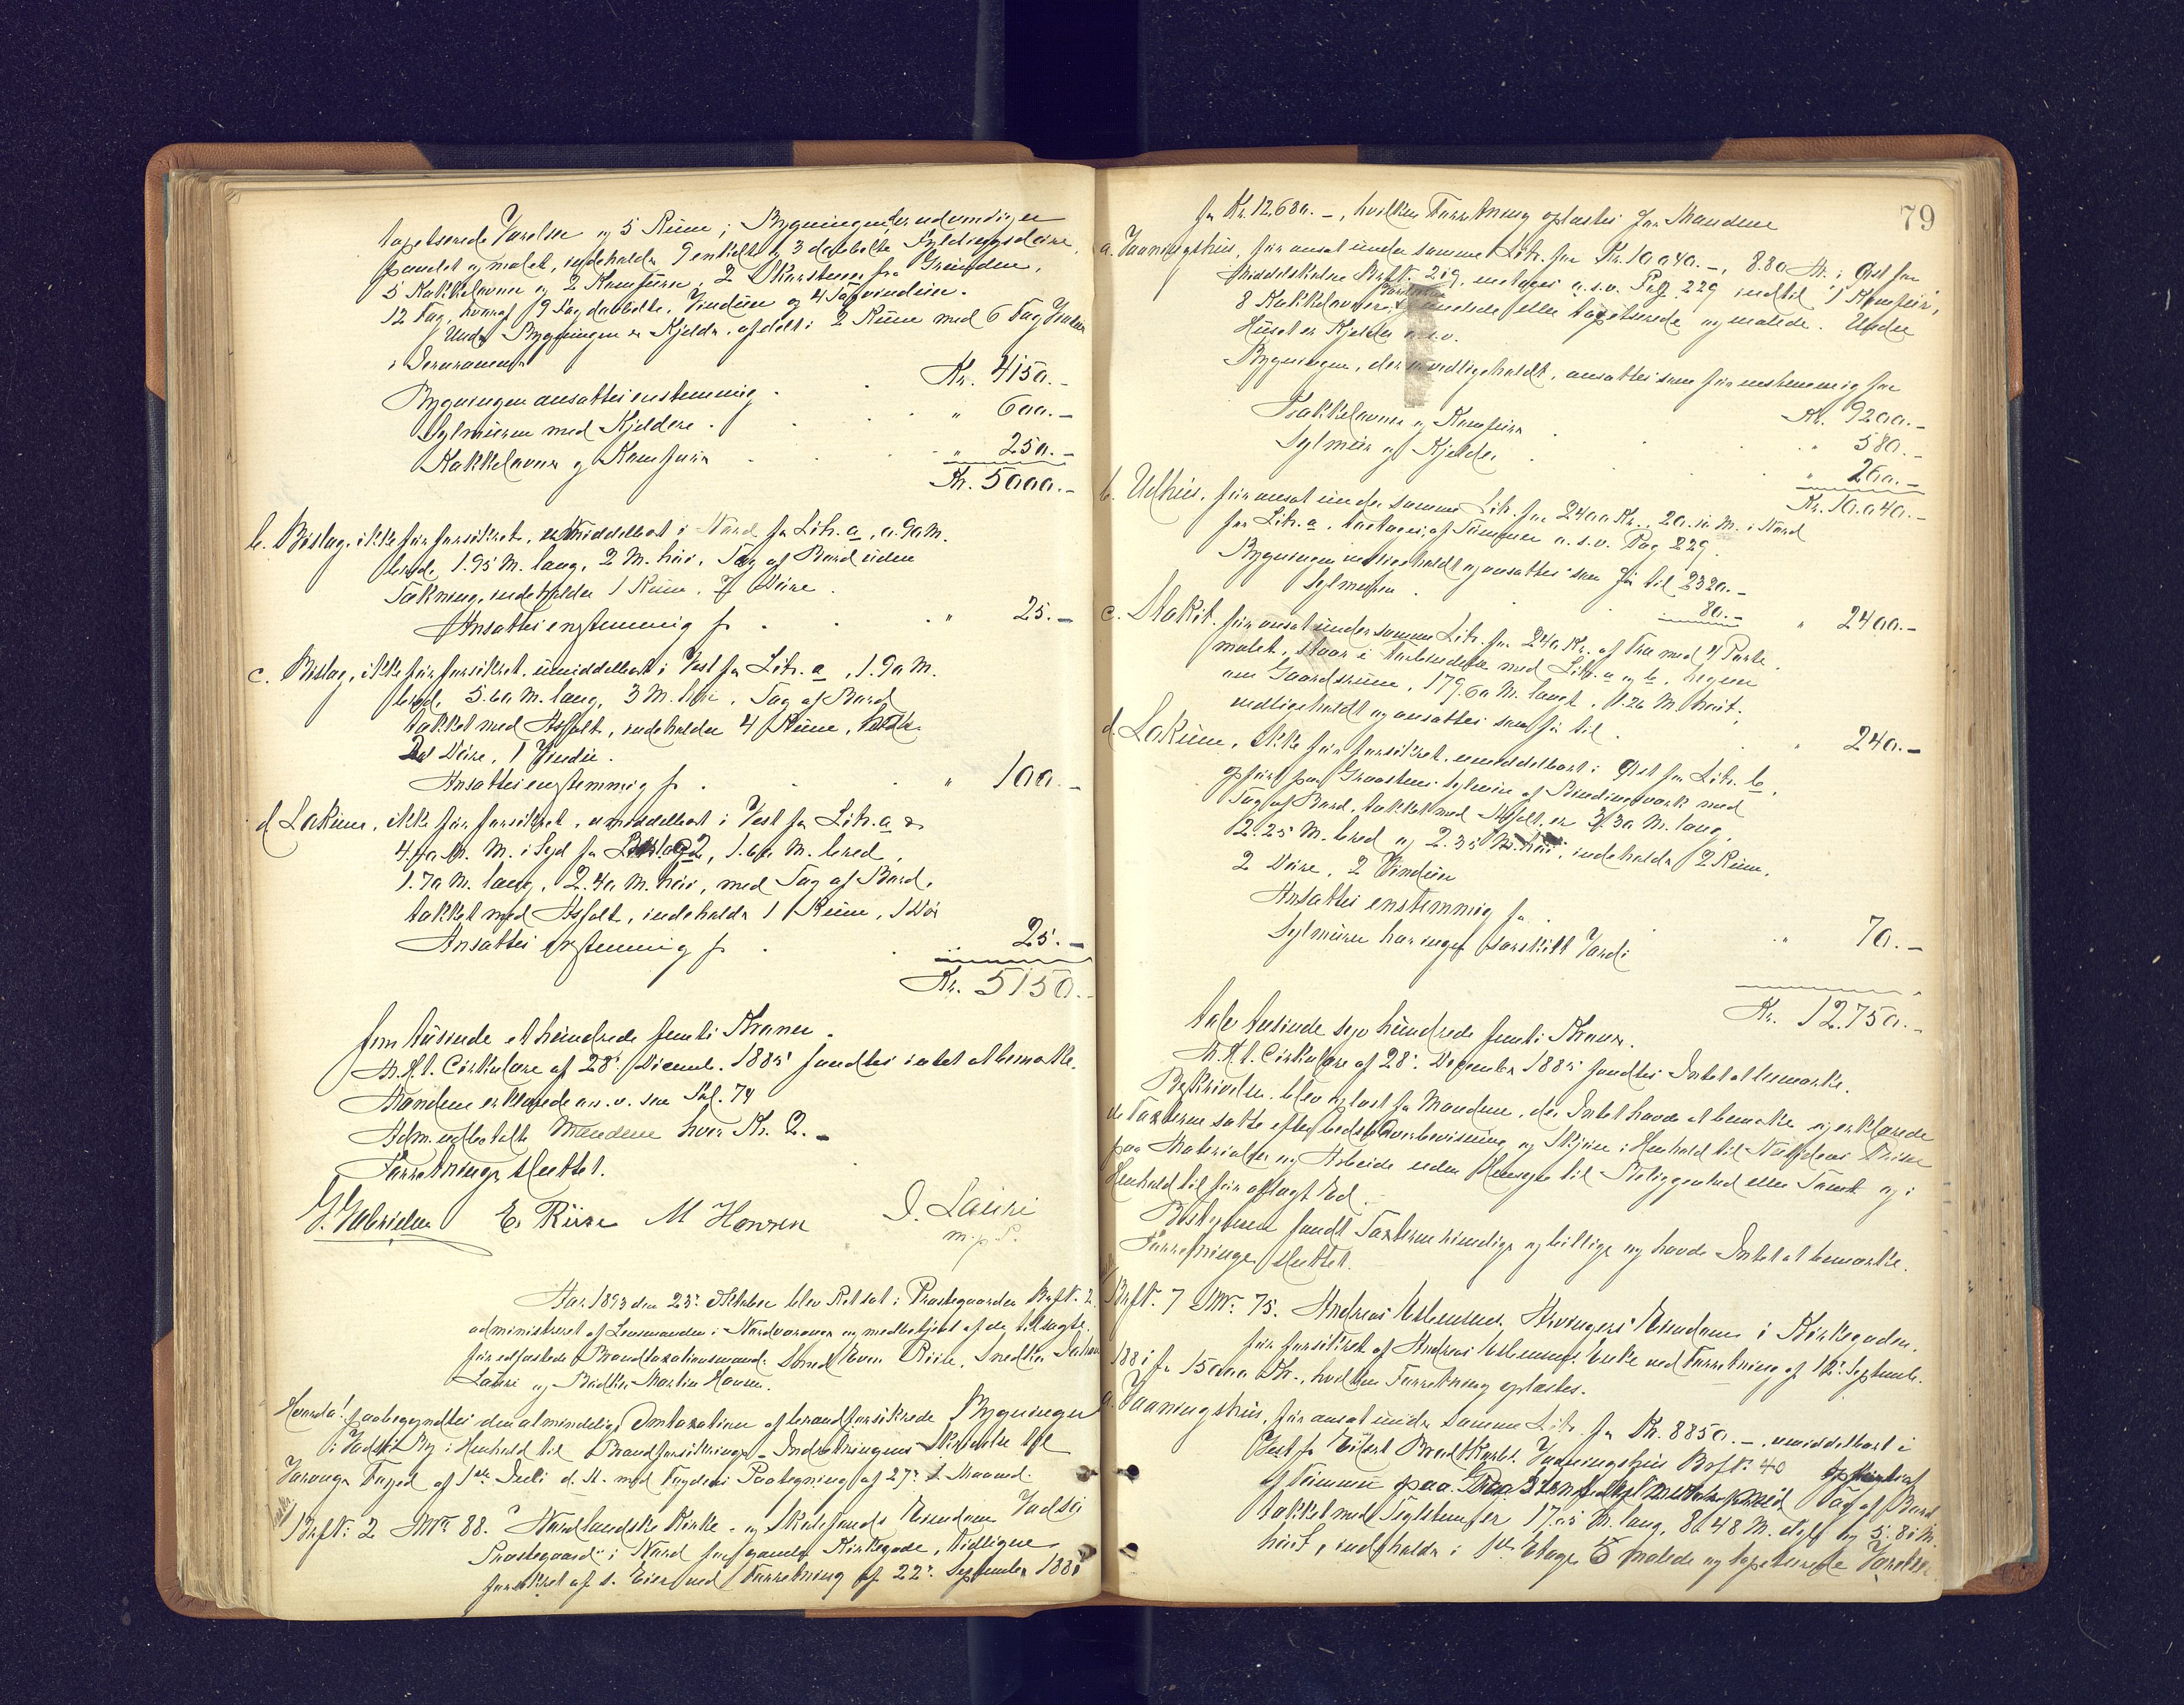 tapetserede Værelser og 5 Rum; Bygningen er udvendigen
panelet og malet, indeholder 9 enkelte og 3 dobbelte Fyldingsdøre,
5 Kakkelovne og 2 Komfurer, 2 Skorstene fra Grunden,
12 Fag, hvoraf 9 Fag dobbelte, Vinduer og 4 Tagvinduer.
Under Bygningen er Kjelder, afdelt i 2 Rum med 6 Fag Vinduer
i
Bygningen ansattes enstemmig . Kr. 4150.-
Sylmuren med Kjeldere . " 600.-
Kakkelovne og Komfurer " 250.-
Kr. 5000.-
b. Bislag, ikke før forsikret, umiddelbart i Nord for Litr. a, 0.90 M.
bred, 1.95 M. lang, 2 M. høi, Tag af Bord uden
Tækning, indeholder 1 Rum, 2 Døre.
Ansattes enstemmig for . " 25.-
c. Bislag, ikke før forsikret, umiddelbart i Vest for Litr. a, 1.90 M.
bred, 5.60 M. lang, 3 M. høi, Tag af Bord
tækket med Asfalt, indeholder 4 Rum,
Døre, 1 Vindu.
Ansattes enstemmig for . " 100.-
d. Lokum, ikke før forsikret, umiddelbart i Vest for Litr. a &
4.40 M. i Syd for 1.60 M. bred,
1.70 M. lang, 2.40 M. høi, med Tag af Bord,
tækket med Asfalt, indeholder 1 Rum, 1 Dør
Ansattes enstemmig for . " 25.-
Kr. 5150.-
fem tusinde et hundrede femti Kroner.
M. H. t. Cirkulære af 28' Decemb. 1885 fandtes intet at bemærke.
Mændene erklærede o. s. v. som Fol. 74
Adm. udbetalte Mændene hver Kr. 2.-
Forretningen sluttet.
G. Gabrielsen E. Riise M Hansen J. Lauri
m. p. P.
Aar 1893 den 23' Oktober blev Ret sat i Præstegaarden Brfk. 2,
administreret af Lensmanden i Nordvaranger og medbetjent af de tilsagte,
før edfæstede Brandtaxationsmænd: Smed Even Riise, Snedker Johan
Lauri og Bødker Martin Hansen.
Hvorda! paabegyndtes den almindelige Omtaxation af brandforsikrede Bygninger
i Vadsø By i Henhold til Brandforsikrings-Indretningens Skrivelse til
Varanger Foged af 1ste Juli d. A. med Fogdens Paategning af 27' s. Maaned.
Brfk. 2 M№ 88. Nordlandske Kirke- og Skolefonds Eiendom Vadsø
Præstegaard i Nord for gamle Kirkegade, tidligere
forsikret af s. Eier ved Forretning af 22' September 1881
79
for Kr. 12,680.-, hvilken Forretning oplæstes for Mændene
a. Vaaningshus, før ansat under samme Litr. for Kr. 10040.-, 8.80 M. i Øst for
Middelskolen Brfk. 219, medtages o. s. v. Pag. 229 indtil 1 Komfur,
8 Kakkelovne, malede eller tapetserede og malede. Under
Huset er Kjelder o. s. v.
Bygningen, der er vedligeholdt, ansattes som før enstemmig for
Kr. 9200.-
Kakkelovne og Komfurer . " 580.-
Sylmur og Kjelder . " 260.-
Kr. 10.040.-
b. Udhus, før ansat under samme Litr. for 2400 Kr., 20.10 M. i Nord
for Litr. a, af Tømmer o. s. v. Pag 229.
Bygningen vedligeholdt og ansattes som før til 2320.-
Sylmuren . 80.- " 2400.-
c. Stakit, før ansat under samme Litr. for 240 Kr. af Træ med 4 Porte,
malet, staar i Forbindelse med Litr. a og b, hegner
om Gaardsrum, 179.60 M. langt, 1.26 M. høit;
vedligeholdt og ansattes som før til . " 240.-
d. Lokum, ikke før forsikret, umiddelbart i Øst for Litr. b,
opført paa Graastens Sylmur af Bindingsværk med
Tag af Bord, tækket med Asfalt, er 3.30 M. lang,
2.25 M. bred og 2.35 M. høi, indeholder 2 Rum,
2 Døre, 2 Vinduer
Ansattes enstemmig for . " 70.-
Sylmuren har ingen særskilt Værdi
Kr. 12.750.-
tolv tusinde syv hundrede femti Kroner.
M. H. t. Cirkulære af 28' December 1885 fandtes Intet at bemærke.
Beskrivelsen blev oplæst for Mændene, der Intet havde at bemærke og erklærede
de Taxterne satte efter bedste Overbevisning og Skjøn i Henhold til Nutidens Priser
paa Materialier og Arbeide uden Hensyn til Beliggenhed eller Tomt og i
Henhold til før aflagt Ed.
Bestyreren fandt Taxterne rimelige og billige og havde Intet at bemærke.
Forretningen sluttet.
Brfk. 7 M№ 75. Andreas Esbensens Arvingers Eiendom i Kirkegaden,
før forsikret af Andreas Esbensens Enke ved Forretning af 12' Septemb.
1881 for 15000 Kr., hvilken Forretning oplæstes.
a. Vaaningshus, før ansat under samme Litr. for Kr. 8850.-, umiddelbart i
Vest for Eilert Brodtkorbs Vaaningshus Brfk. 40 opført af
Tømmer paa Graasten med Tag af Bord
tækket med Teglsten, er 17.05 M. lang, 8.48 M. dyb og 5.81 M.
høit, indeholder i 1ste Etage 5 malede og tapetserede Værelser,